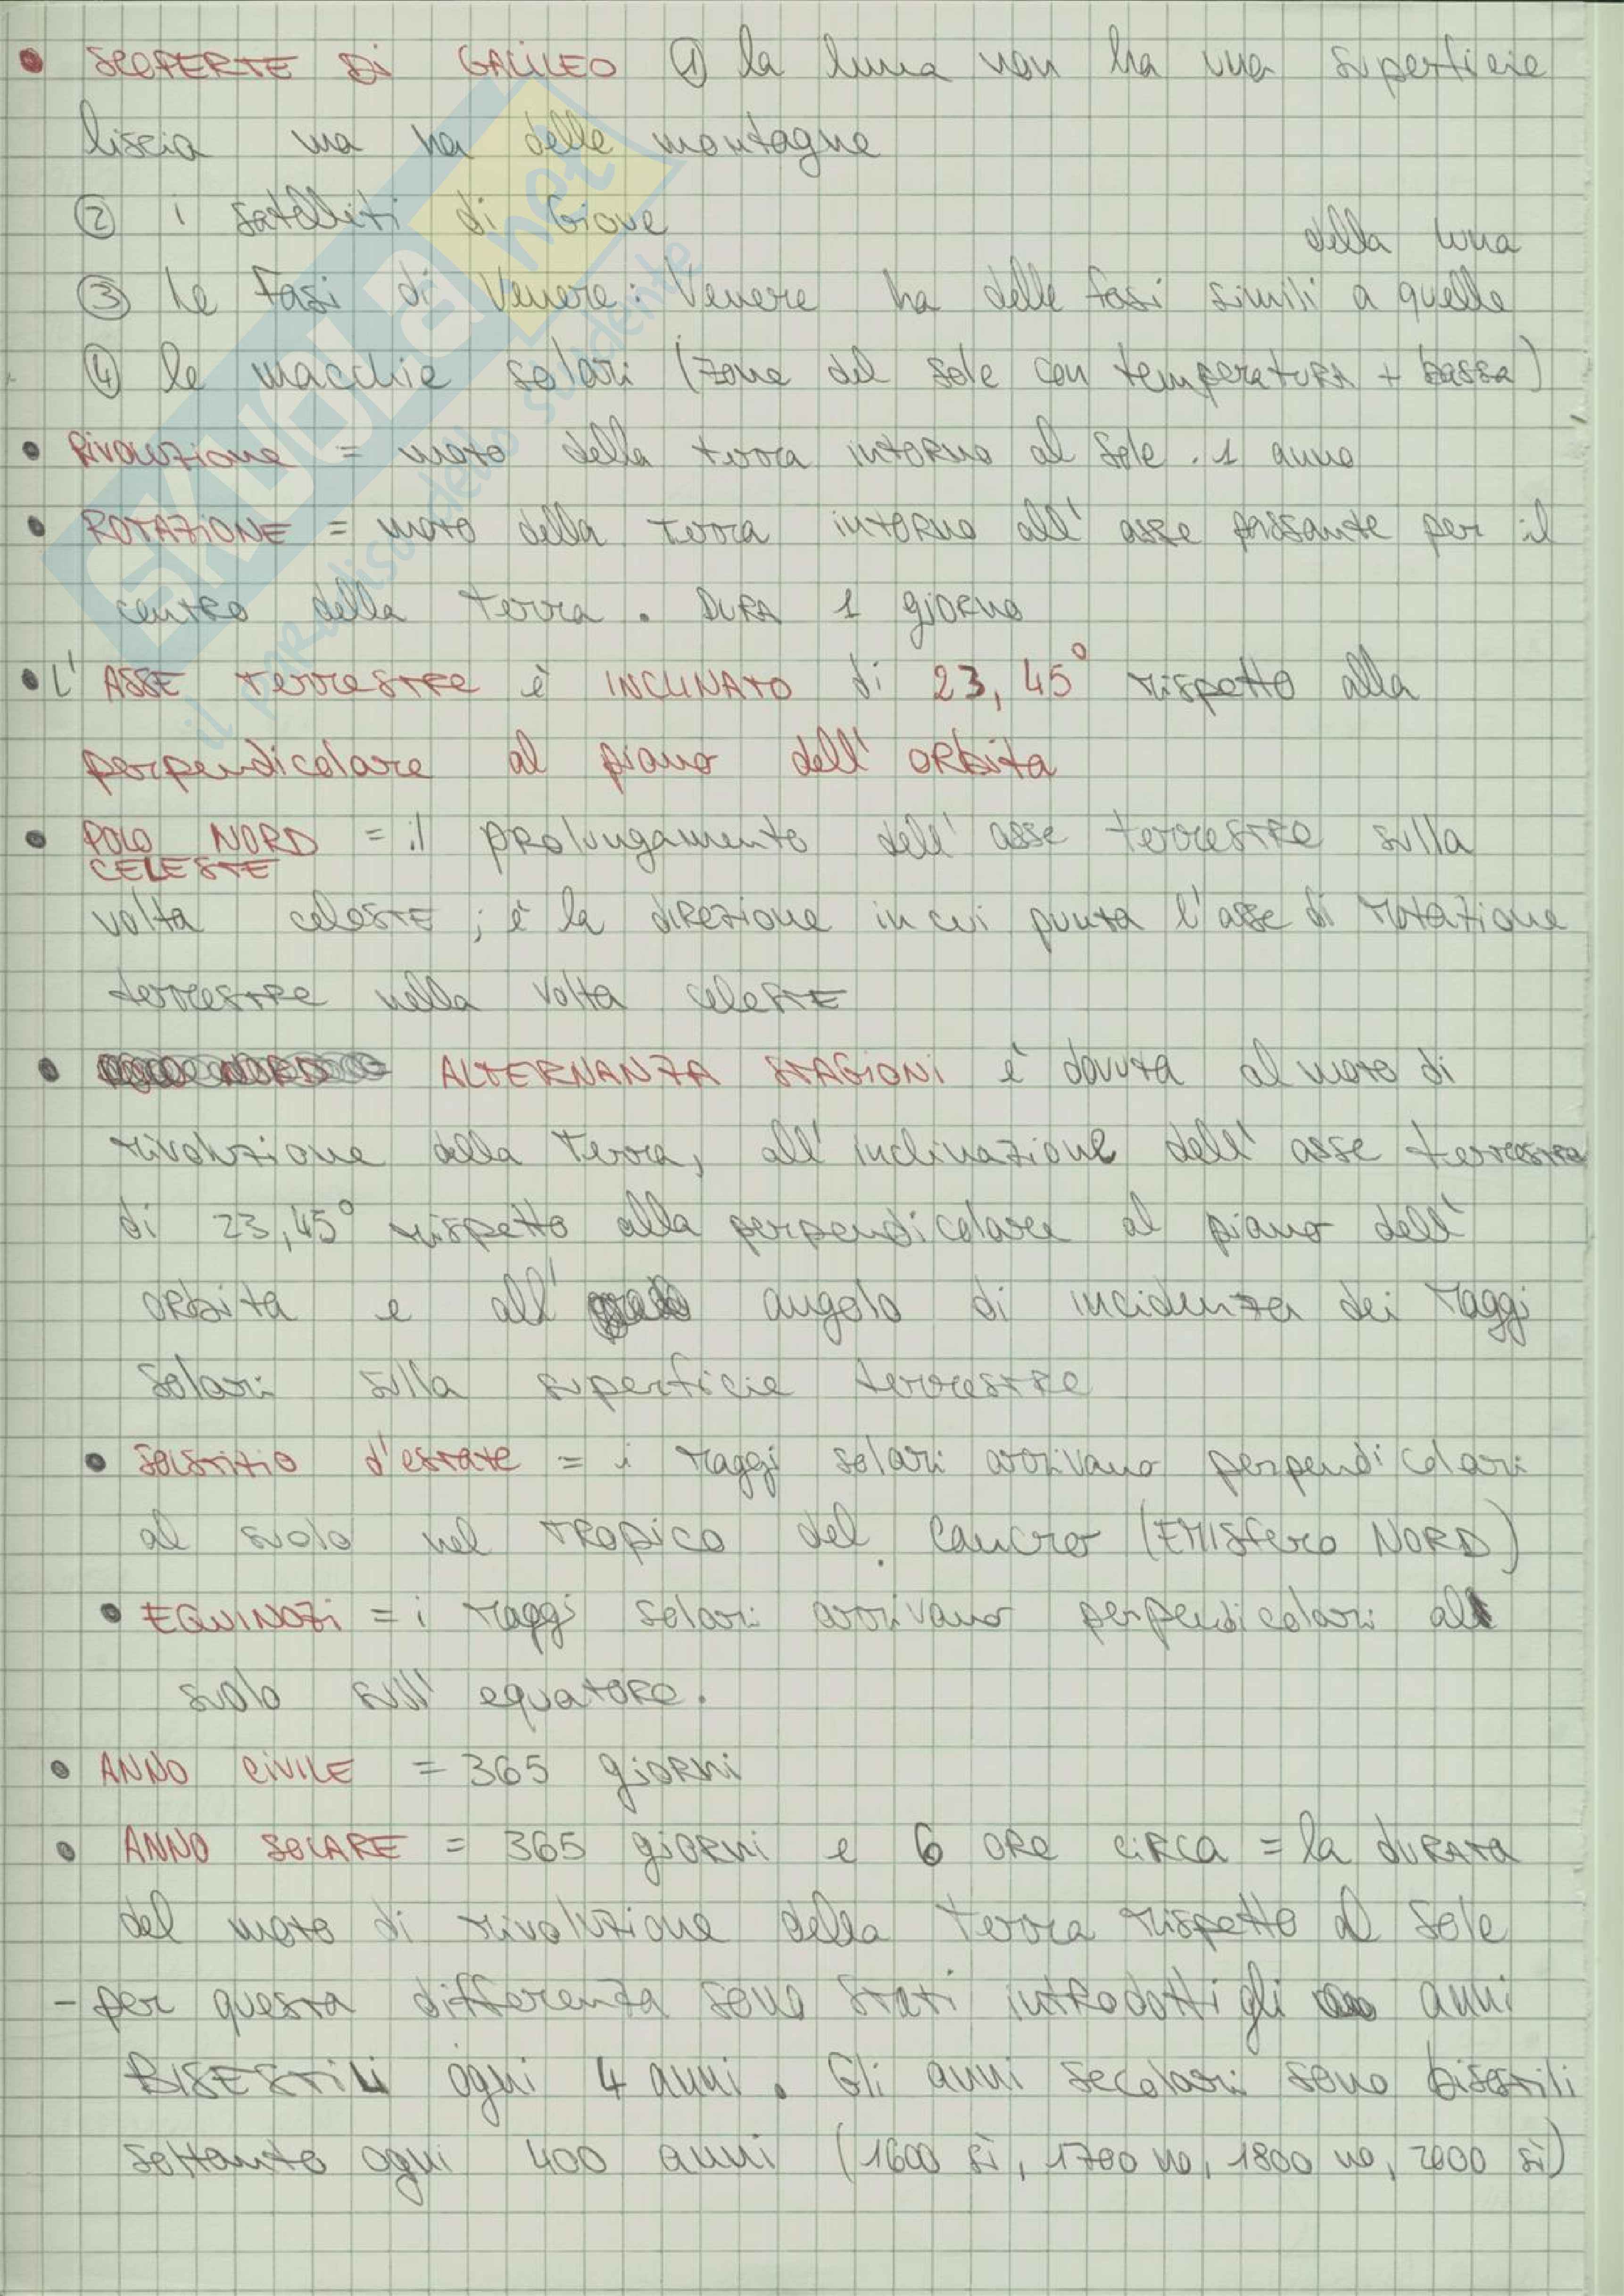 • SCOPERTE DI GALILEO ① la luna non ha una superficie
liscia ma ha delle montagne
② i satelliti di Giove
della luna
③ Le Fasi di Venere: Venere ha delle fasi simili a quelle
④ le macchie solari (zone del sole con temperatura + bassa)
• Rivoluzione = moto della terra intorno al Sole. 1 anno
• ROTAZIONE = moto della terra intorno all'asse passante per il
centro della terra. DURA 1 giorno
• L'ASSE terrestre è INCLINATO di 23,45° rispetto alla
perpendicolare al piano dell'orbita
• POLO NORD = il prolungamento dell'asse terrestre sulla
CELESTE
volta celeste; è la direzione in cui punta l'asse di rotazione
terrestre nella volta celeste
• ALTERNANZA STAGIONI è dovuta al moto di
rivoluzione della Terra, all'inclinazione dell'asse terrestre
di 23,45° rispetto alla perpendicolare al piano dell'
orbita e all' angolo di incidenza dei raggi
solari sulla superficie terrestre
• Solstizio d'estate = i raggi solari arrivano perpendicolari
al suolo nel tropico del Cancro (EMISfero NORD)
• EQUINOZI = i raggi solari arrivano perpendicolari al
suolo sull'equatore.
• ANNO CIVILE = 365 giorni
• ANNO SOLARE = 365 giorni e 6 ore circa = la durata
del moto di rivoluzione della terra rispetto al Sole
- per questa differenza sono stati introdotti gli anni
BISESTILI ogni 4 anni. Gli anni secolari sono bisestili
soltanto ogni 400 anni (1600 sì, 1700 no, 1800 no, 2000 sì)
SKUOLA.net
il paradiso dello studente